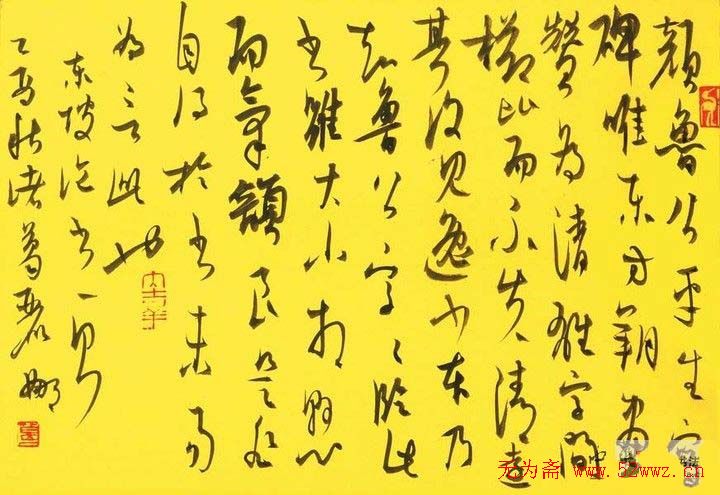 颜鲁公平生写
碑唯东方朔画
赞为清雄字间
栉比而不失清远
其后见逸少本乃
知鲁公字〻临此
书虽大小相悬
而气韵良是非
自得于书未易
为言此也
东坡论书一则
秋诸葛丽娜
无为斋 www.52wwz.cn